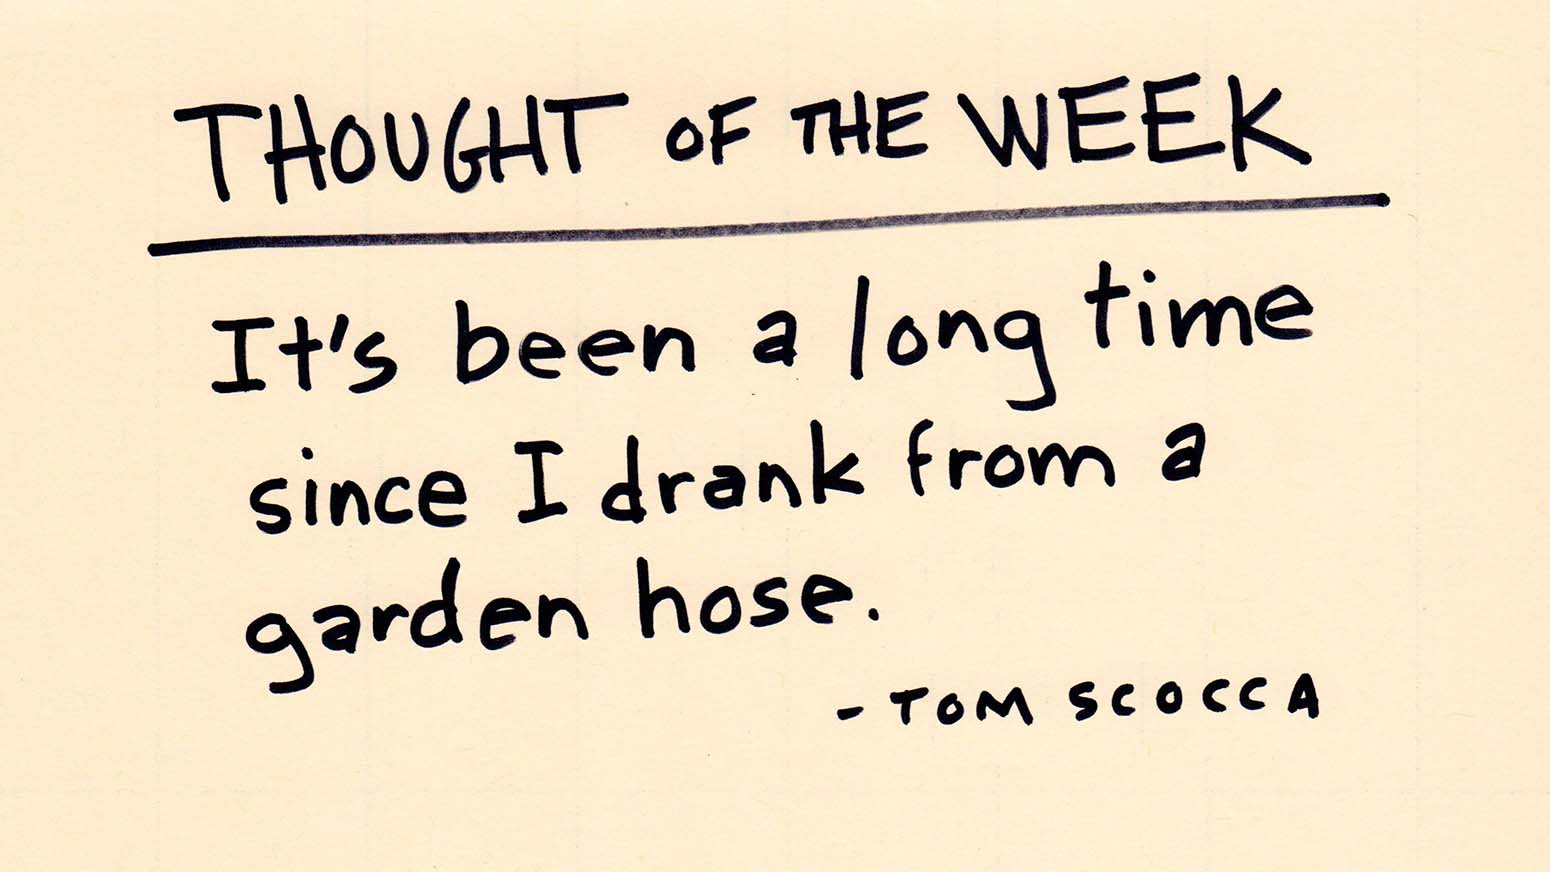 THOUGHT OF THE WEEK
It's been a long time
since I drank from a
garden hose.
- TOM SCOCCA